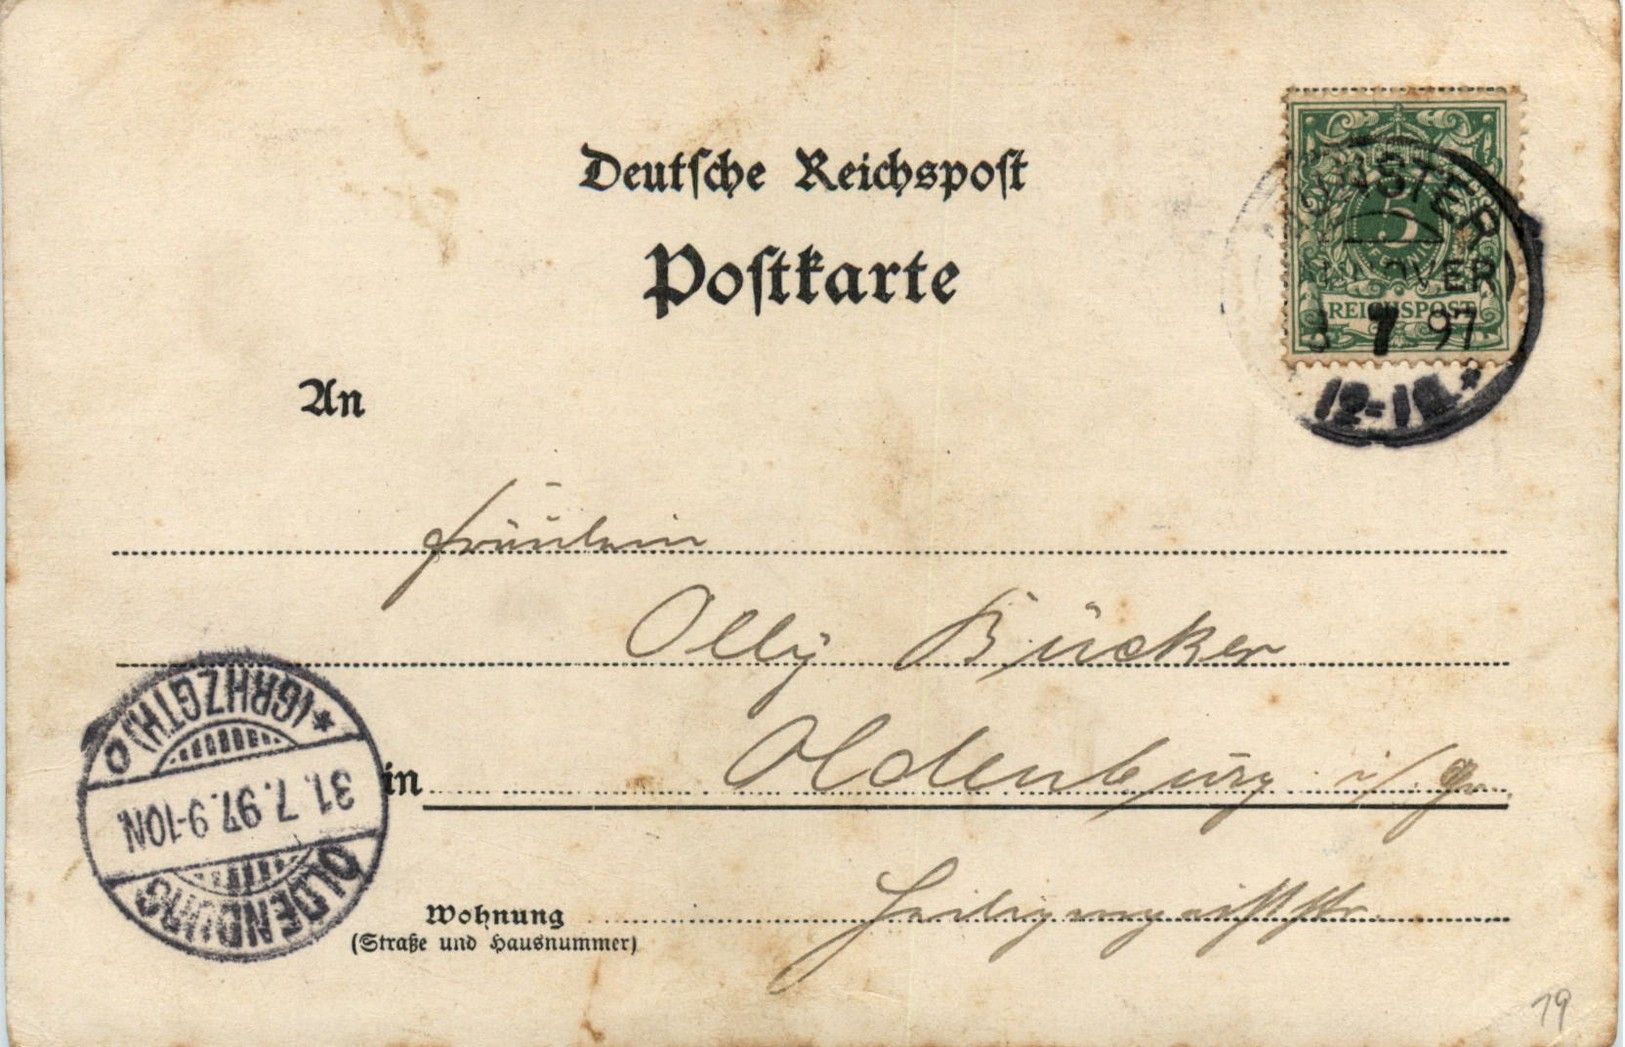 Deutsche Reichspost
Postkarte
5
REICHSPOST
STER
OVER
7 97
12-1
An
Fräulein
Olly Bücker
in Oldenburg i/Gr.
Wohnung Heiligengeiststr.
(Straße und Hausnummer)
OLDENBURG
31.7.97.9-10N.
*(GRHZGTH)o
19